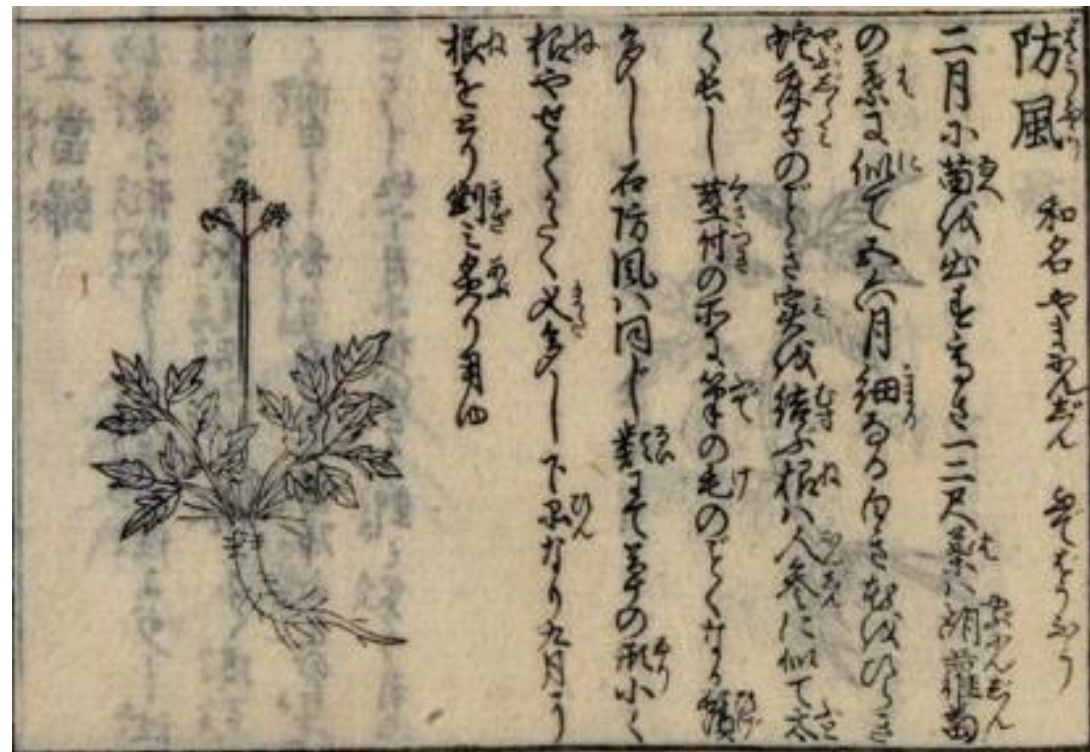 防風 和名 やまにんじん 筆ばうふう
二月に苗を出す高さ一二尺葉は胡蘿蔔
の葉に似て五六月細なる白き花をひらき
蛇床子のごとき実を結ぶ根は人参に似て太
く長し茎付の所に筆の毛のごとくなる鬚
多し石防風は同じ類にて草の形小く
根やせてかたく又多し下品なり九月より
根をとり剉み炙り用ゆ